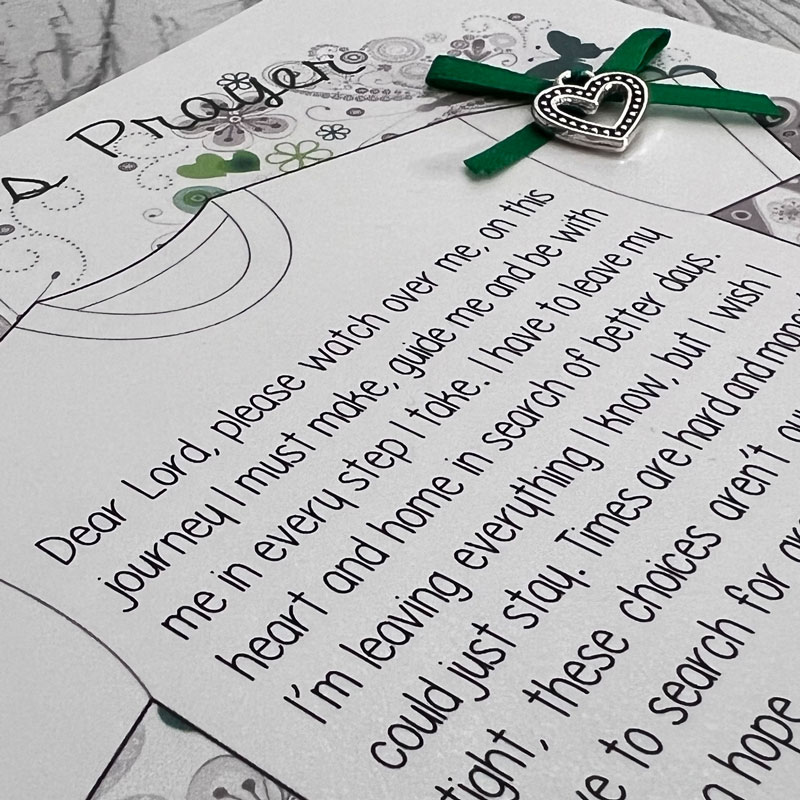 s Prayer
Dear Lord, please watch over me, on this
journey I must make, guide me and be with
me in every step I take. I have to leave my
heart and home in search of better days.
I'm leaving everything I know, but I wish I
could just stay. Times are hard and
tight, these choices aren't
to search for
hope